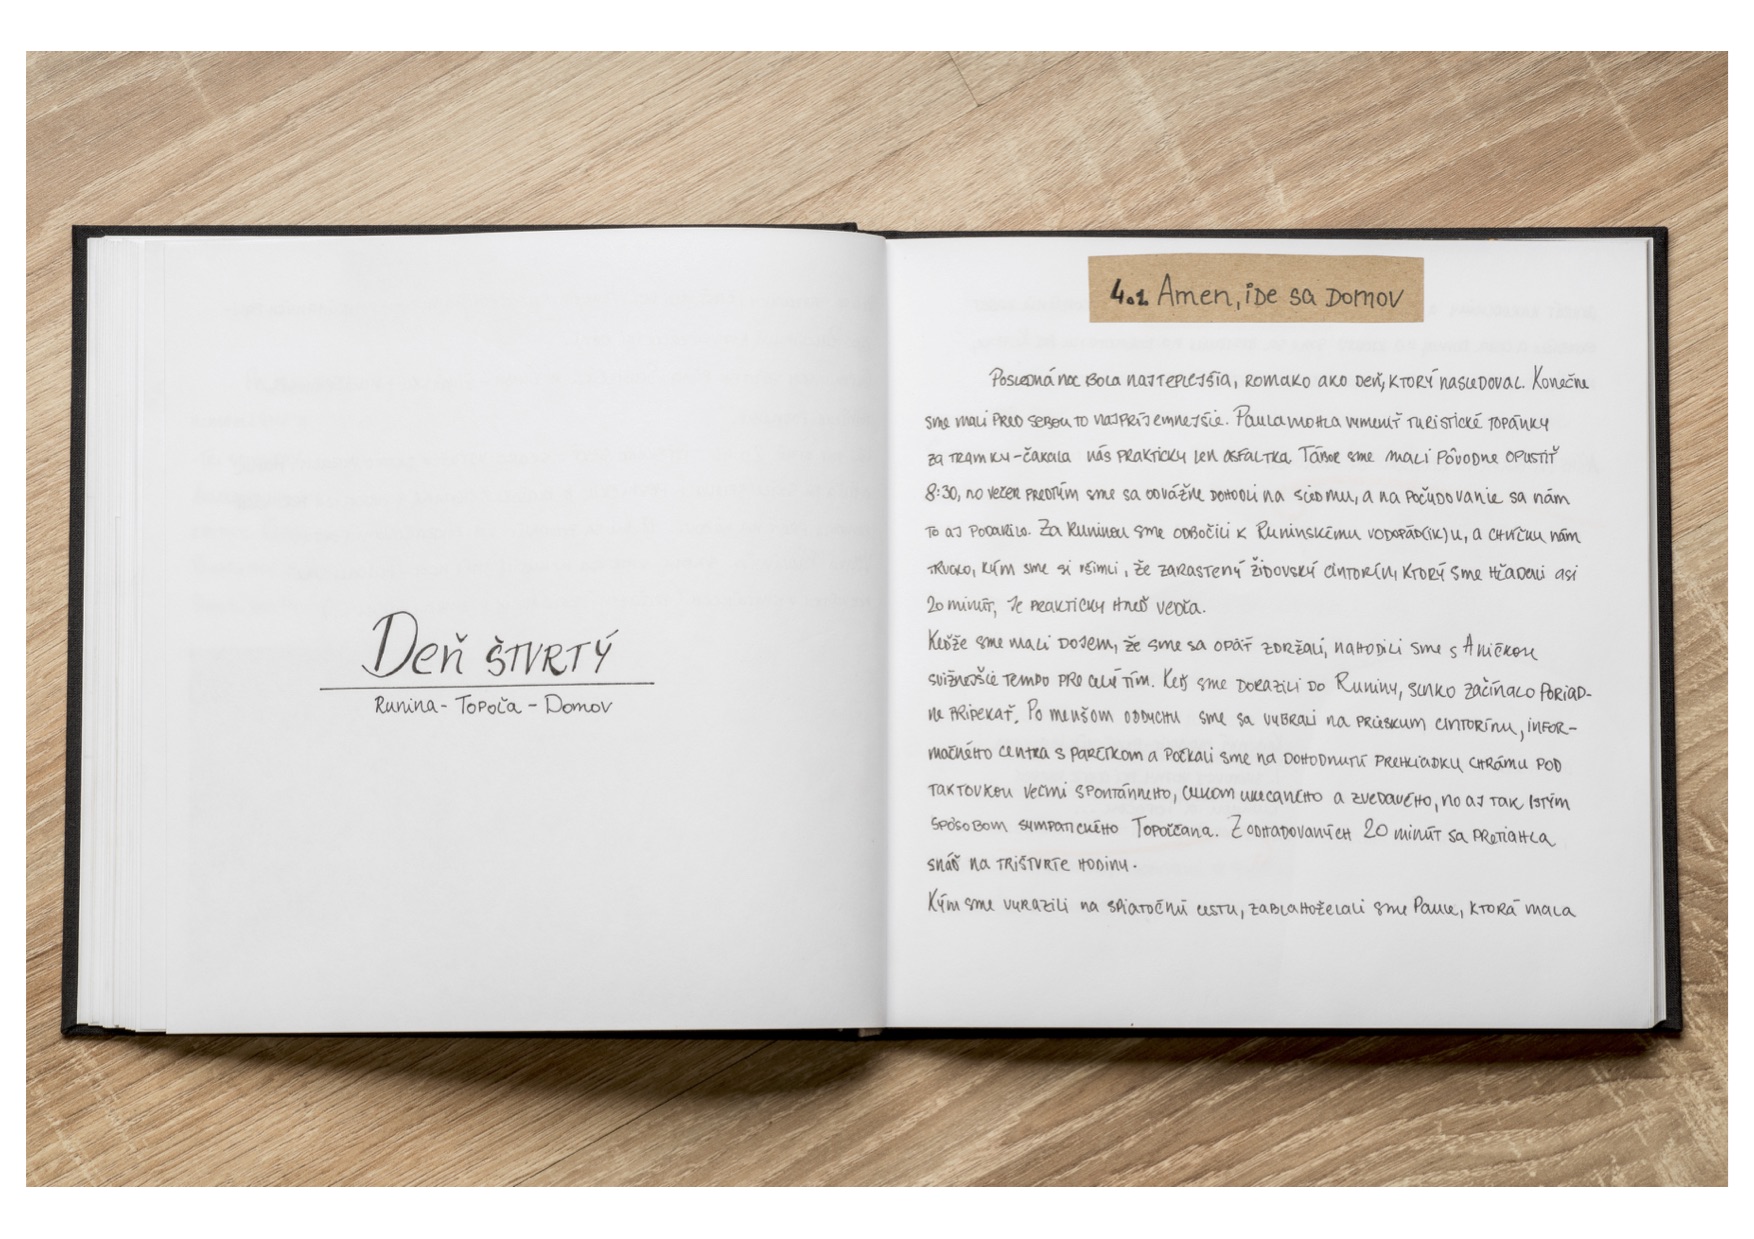 Deň štvrtý
Runina - Topoľa - Domov
4.1 Amen, ide sa domov
Posledná noc bola najteplejšia, rovnako ako deň, ktorý nasledoval. Konečne
sme mali pred sebou to najpríjemnejšie. Paula mohla vymeniť turistické topánky
za tramky - čakala nás prakticky len asfaltka. Tábor sme mali pôvodne opustiť
8:30, no večer predtým sme sa odvážne dohodli na siedmu, a na počudovanie sa nám
to aj podarilo. Za Runinou sme odbočili k Runinskému vodopád(ik)u, a chvíľku nám
trvalo, kým sme si všimli, že zarastený židovský cintorín, ktorý sme hľadali asi
20 minút, je prakticky hneď vedľa.
Keďže sme mali dojem, že sme sa opäť zdržali, nahodili sme s Aničkou
svižnejšie tempo pro celý tím. Keď sme dorazili do Runiny, slnko začínalo poriad-
ne pripekať. Po menšom oddychu sme sa vybrali na prieskum cintorínu, infor-
mačného centra s parčíkom a počkali sme na dohodnutú prehliadku chrámu pod
taktovkou veľmi spontánneho, celkom ukecaného a zvedavého, no aj tak istým
spôsobom sympatického Topoľčana. Z odhadovaných 20 minút sa pretiahla
snáď na trištvrte hodiny.
Kým sme vyrazili na spiatočnú cestu, zablahoželali sme Paule, ktorá mala